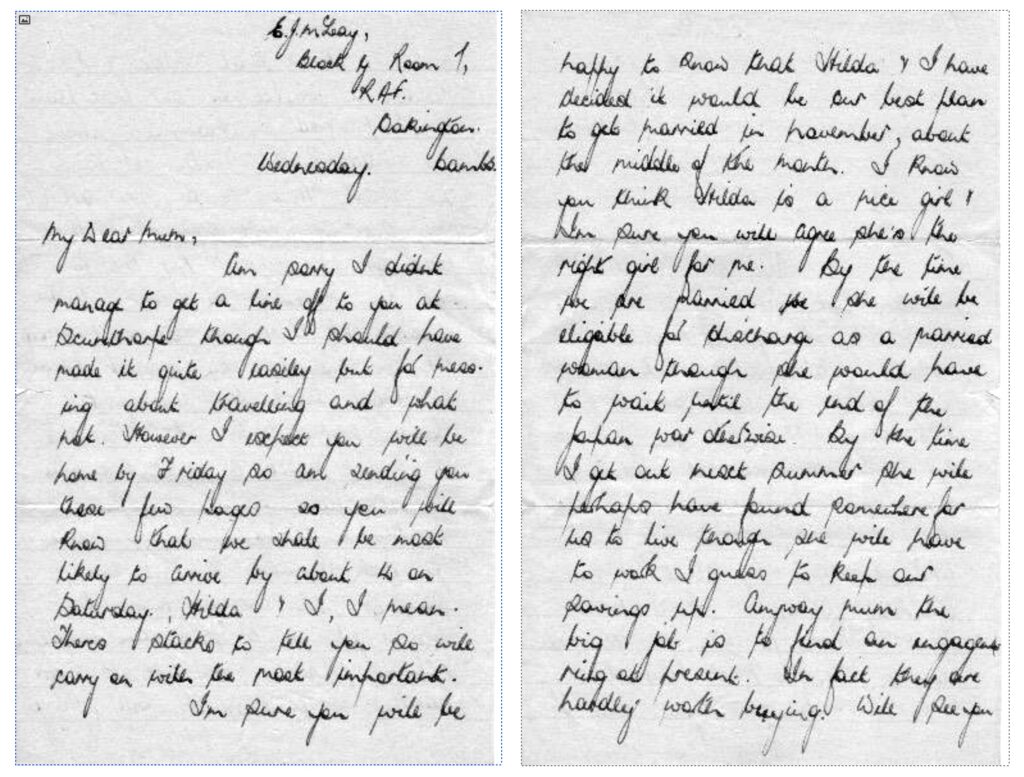 E.J. McLeay,
Block 4 Room 1,
R.A.F.
Oakington.
Wednesday. Cambs.
My Dear Mum,
Am sorry I didnt
manage to get a line off to you at
Scunthorpe though I should have
made it quite easiley but for mess-
ing about travelling and what
not. However I expect you will be
home by Friday so am sending you
these few pages so you will
know that we shall be most
likely to arrive by about 4 on
Saturday., Hilda & I, I mean.
Theres stacks to tell you so will
carry on with the most important.
I'm sure you will be
happy to know that Hilda & I have
decided it would be our best plan
to get married in november, about
the middle of the month. I know
you think Hilda is a nice girl &
I'm sure you will agree she's the
right girl for me. By the time
we are married she will be
eligable for discharge as a married
woman though she would have
to wait until the end of the
Japan war otherwise. By the time
I get out next summer she will
perhaps have found somewhere for
us to live though she will have
to work I guess to keep our
savings up. Anyway mum the
big job is to find an engagent
ring at present. In fact they are
hardley worth buying. Will see you